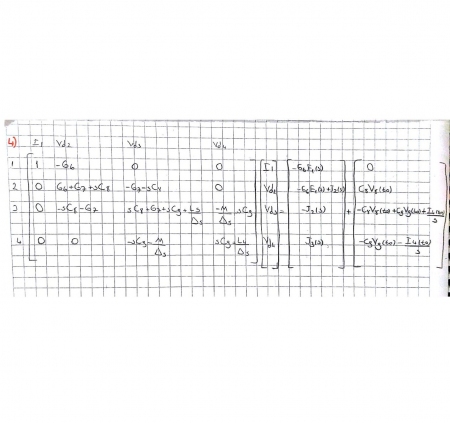 4) I1 Vd2 Vd3 Vd4
1 1 -G6 0 0 I1 -G6E6(s) 0
2 0 G6+G7+sC8 -G7-sC8 0 Vd2 -G6E6(s)+J2(s) C8V8(to)
3 0 -sC8-G7 sC8+G7+sC9+ Δs -M/Δs -sC9 Vd3 = -J2(s) + -C8V8(to)+C9V9(to)+ s
4 0 0 -sC9-M/Δs sC9+L4/Δs Vd4 J3(s) -C9V9(to) - s